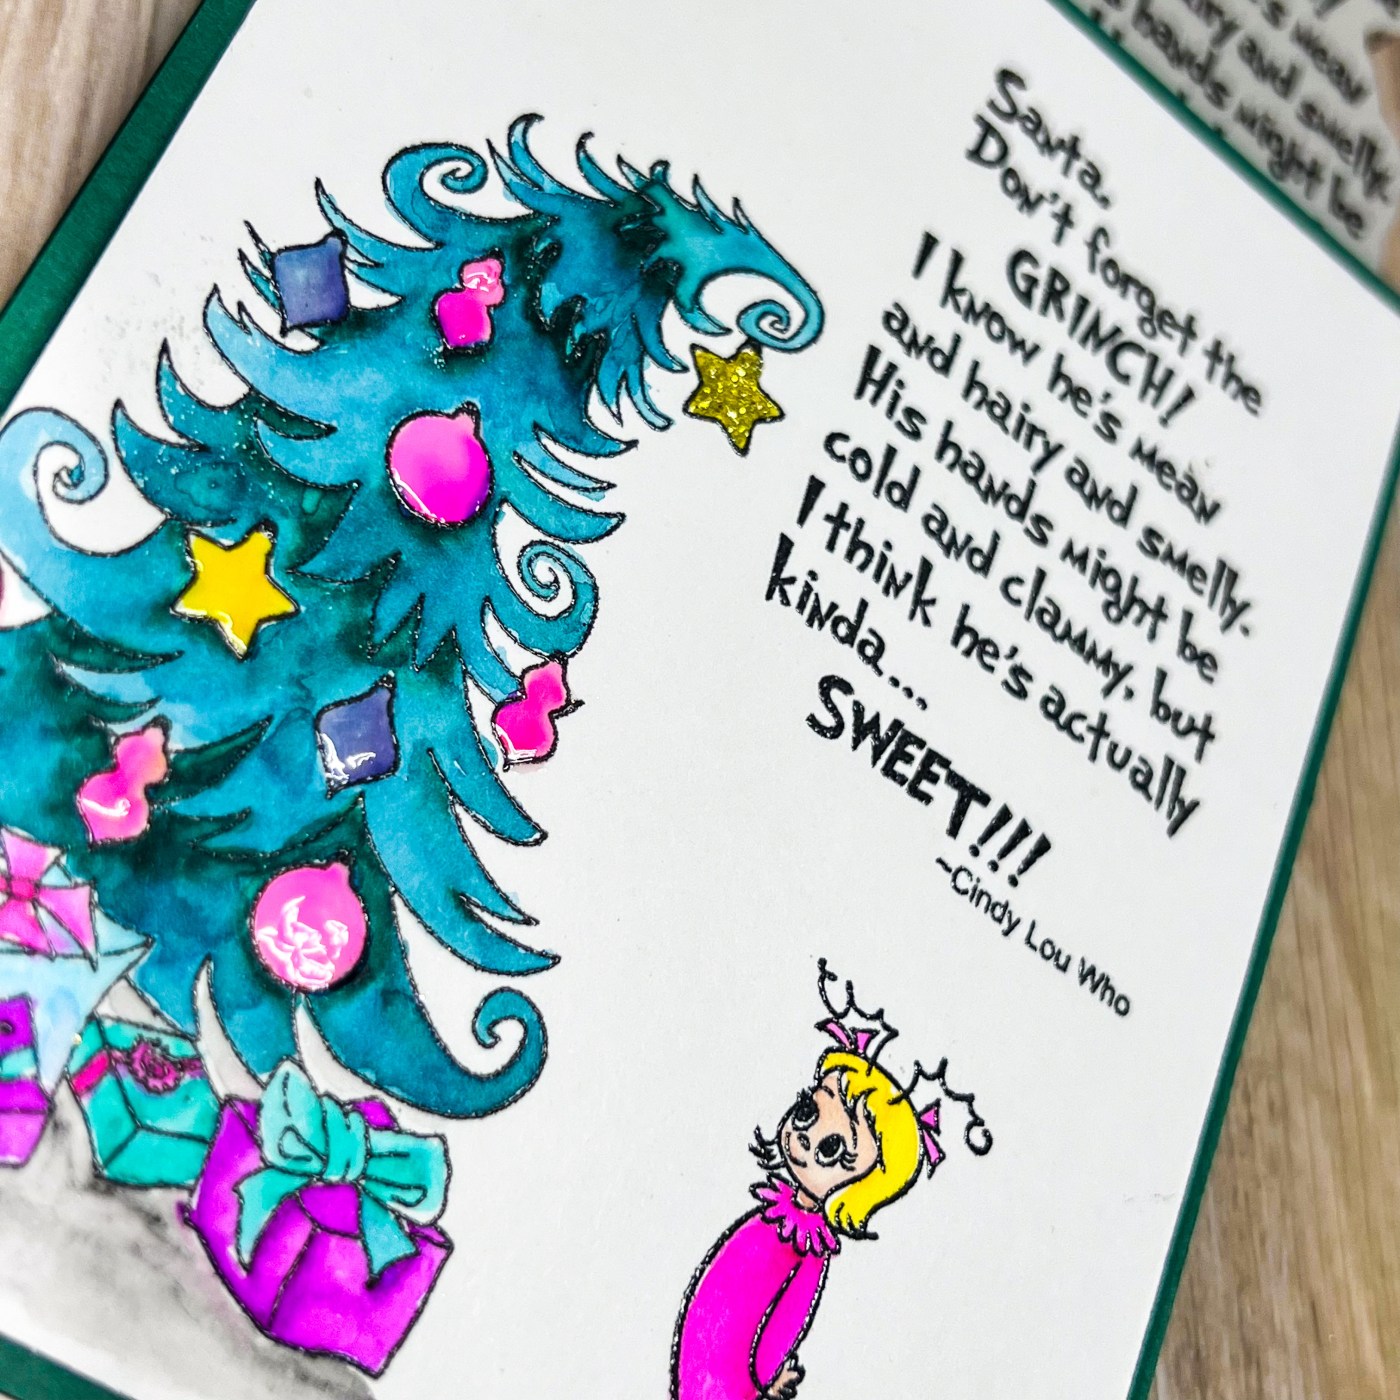 Santa,
Don't forget the
GRINCH!
I know he's mean
and hairy and smelly.
His hands might be
cold and clammy, but
I think he's actually
kinda...
SWEET!!!
~Cindy Lou Who
he's mean
hairy and smelly.
hands might be